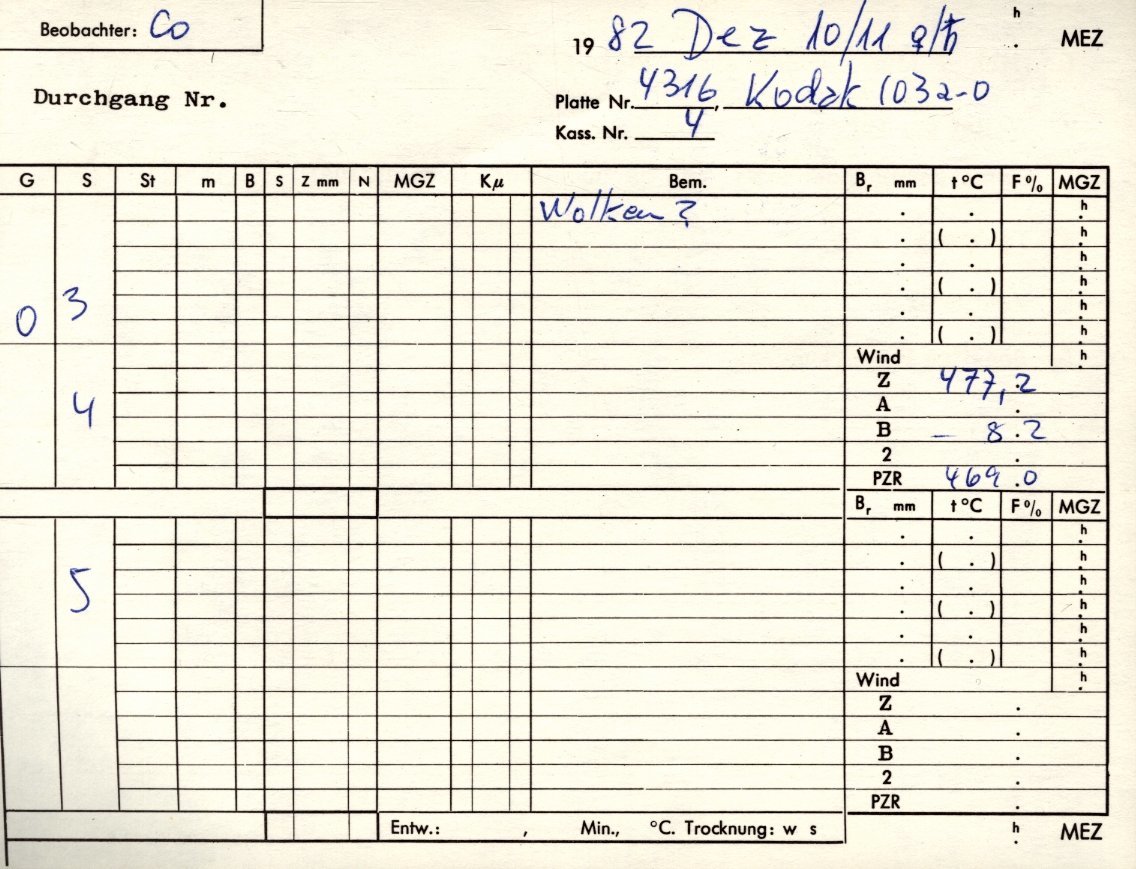 Beobachter: Co
h
19 82 Dez 10/11 ♀/♄ . MEZ
Durchgang Nr.
Platte Nr. 4316, Kodak 103a-O
Kass. Nr. 4
G S St m B S Z mm N MGZ Kμ Bem. Br mm t °C F% MGZ
Wolken? . . h
. ( . ) h
. . h
3 . ( . ) h
0 . . h
. ( . ) h
Wind h
Z 477,2
4 A .
B - 8.2
2 .
PZR 469.0
Br mm t °C F% MGZ
. . h
. ( . ) h
5 . . h
. ( . ) h
. . h
. ( . ) h
Wind h
Z .
A .
B .
2 .
PZR .
Entw.: , Min., °C. Trocknung: w s h . MEZ